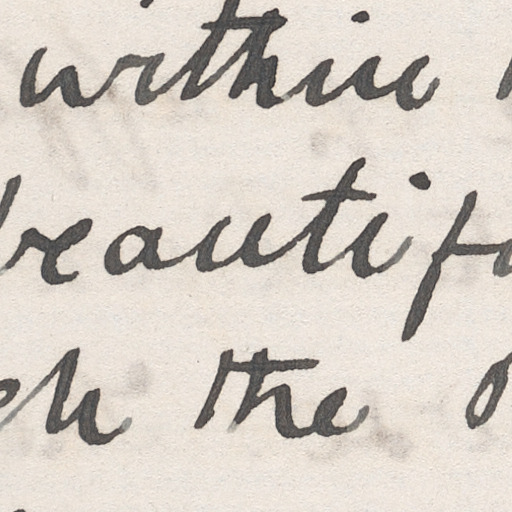 within
beautifu
gh the